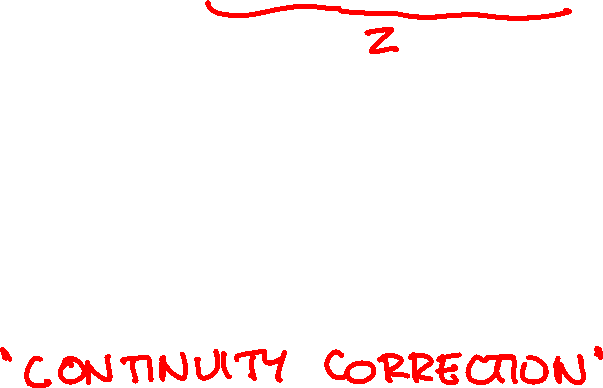 Z
"CONTINUITY CORRECTION"